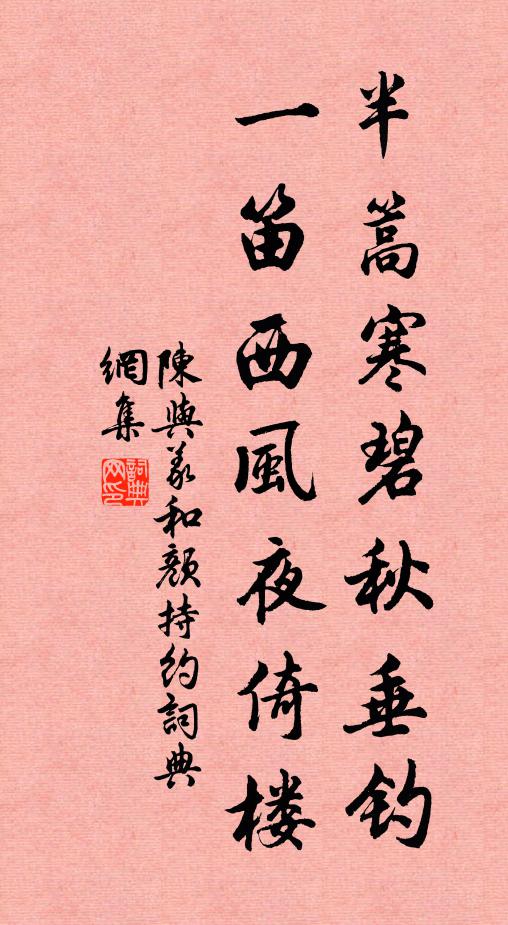 半篙寒碧秋垂钓
一笛西風夜倚楼
陳與義和顔持約詞典
網集
詞典网印